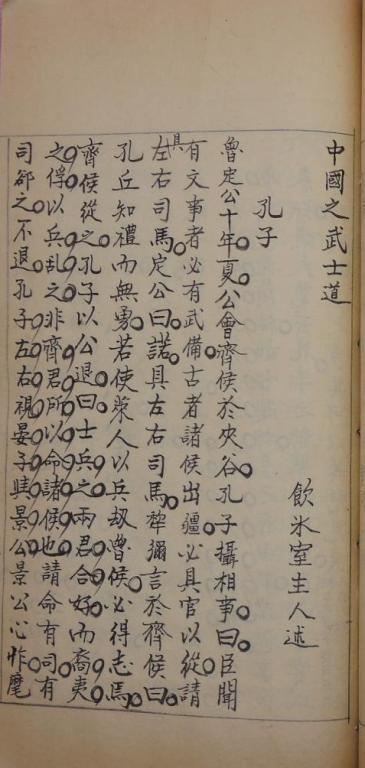 中國之武士道
孔子
飲氷室主人述
魯定公十年夏公會齊侯於夾谷孔子攝相事曰臣聞
有文事者必有武備古者諸侯出疆必具官以從請具
左右司馬定公曰諾具左右司馬犂彌言於齊侯曰
孔丘知禮而無勇若使萊人以兵刼魯侯必得志焉
齊侯從之孔子以公退曰士兵之兩君合好而裔夷
之俘以兵乱之非齊君所以命諸侯也請命有司有
司卻之不退孔子左右視晏子與景公景公心怍麾